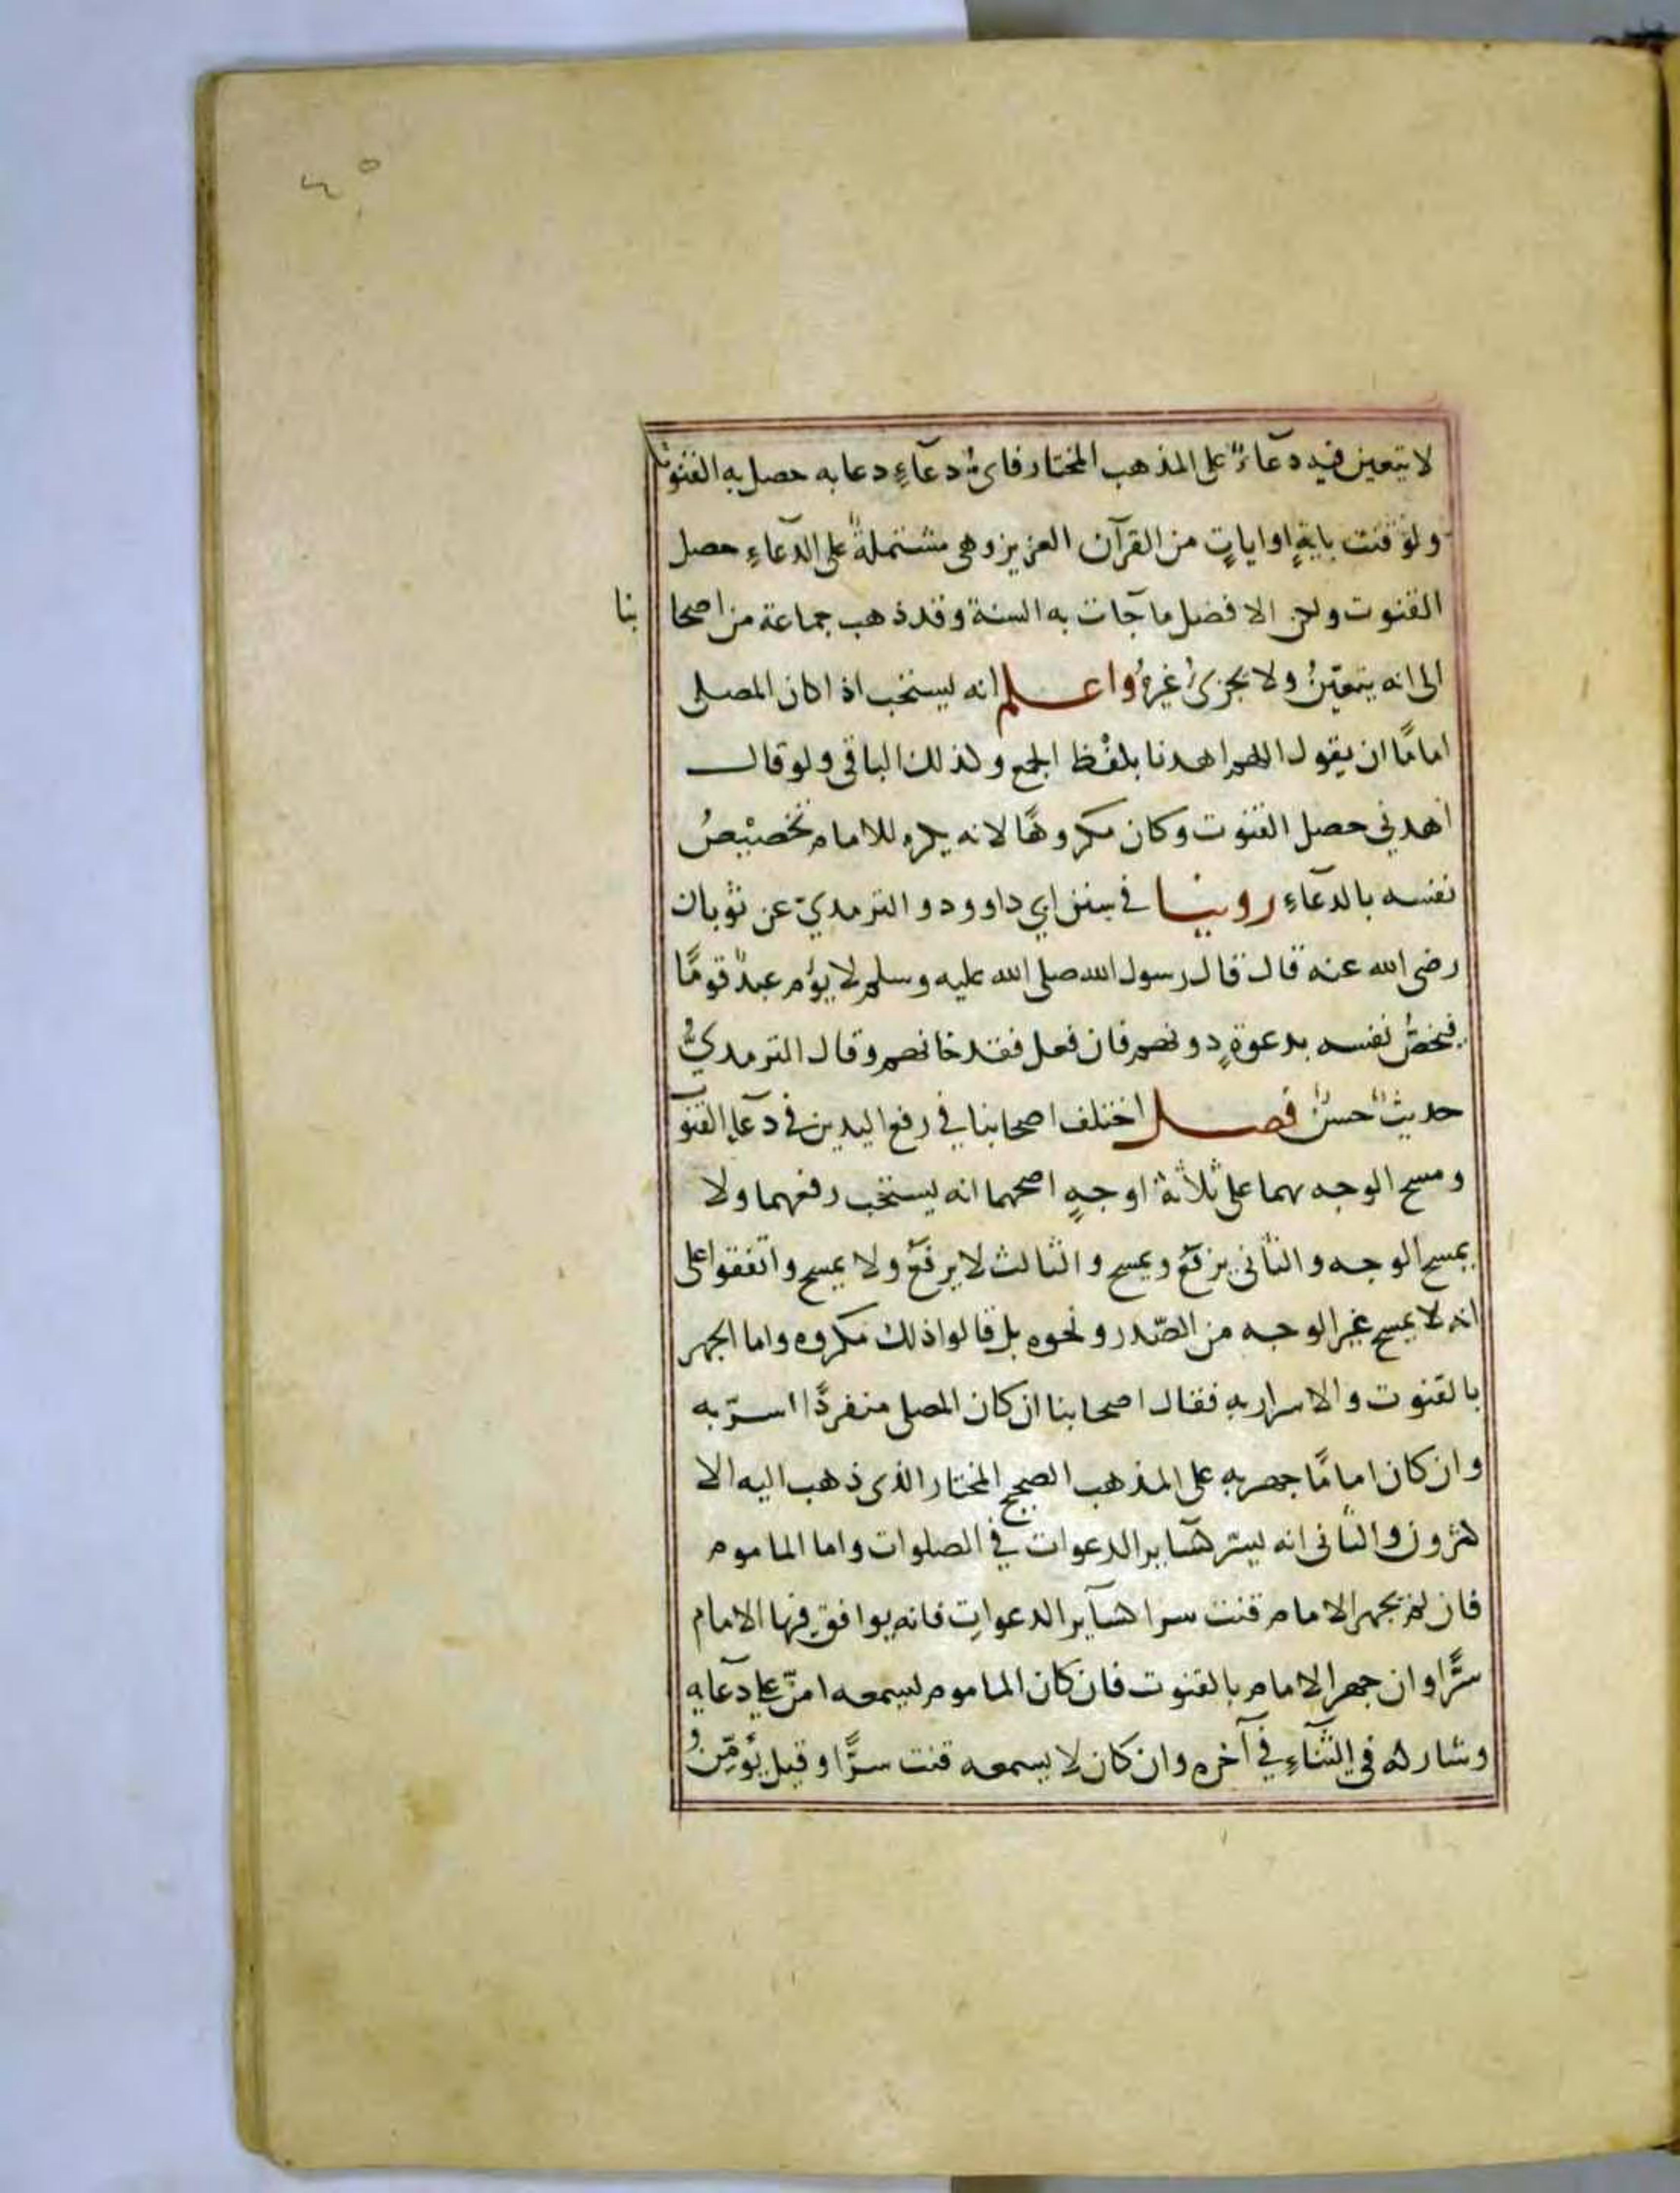 لا يتعين فيه دعآءٌ على المذهب المختار فاىُّ دعآءٍ دعا به حصل به القنوت
ولو قنت بايةٍ او اياتٍ من القرآن العزيز وهى مشتملةٌ على الدّعاءِ حصل
القنوت ولكن الافضل ما جآت به السنة وقد ذهب جماعة من اصحا بنا
الى انه يتعيّنُ ولا يجزىُ غيرهُ واعلم انه يستحب اذا كان المصلى
امامًا ان يقول اللهم اهدنا بلفْظ الجمع وكذلك الباقى ولو قال
اهدنى حصل القنوت وكان مكروهًا لانه يكره للامام تخصيْصُ
نفسه بالدعآءِ روينا في سنن ابي داوود والترمديّ عن ثوْبان
رضى الله عنه قال قال رسول الله صلى الله عليه وسلم لا يؤم عبدٌ قومًا
فيخصُّ نفسه بدعوةٍ دونهم فان فعل فقد خانهم وقال الترمديُّ
حديثٌ حسنٌ فصل اختلف اصحابنا في رفع اليدين فى دعآء القنو
ومسح الوجه بهما على ثلاثة اوجهٍ اصحهما انه يستحب رفعهما ولا
يمسح الوجه والثانى يرفع ويمسح والثالث لا يرفع ولا يمسح واتفقوا على
انه لا يمسح غير الوجه من الصّدر ونحوه بل قالوا ذلك مكروه واما الجهر
بالقنوت والاسرار به فقال اصحابنا ان كان المصلى منفردًا اسرّ به
وان كان امامًا جهر به على المذهب الصحيح المختار الذى ذهب اليه الا
كثرون والثانى انه يسرّ كسآير الدعوات في الصلوات واما الماموم
فان لم يجهر الامام قنت سرا كسآير الدعوات فانه يوافق فيها الامام
سرًّا وان جهر الامام بالقنوت فان كان الماموم يسمعه امنّ على دعآيه
وشاركه فى الثنآءِ في آخره وان كان لا يسمعه قنت سرًّا وقيل يؤمّنُ